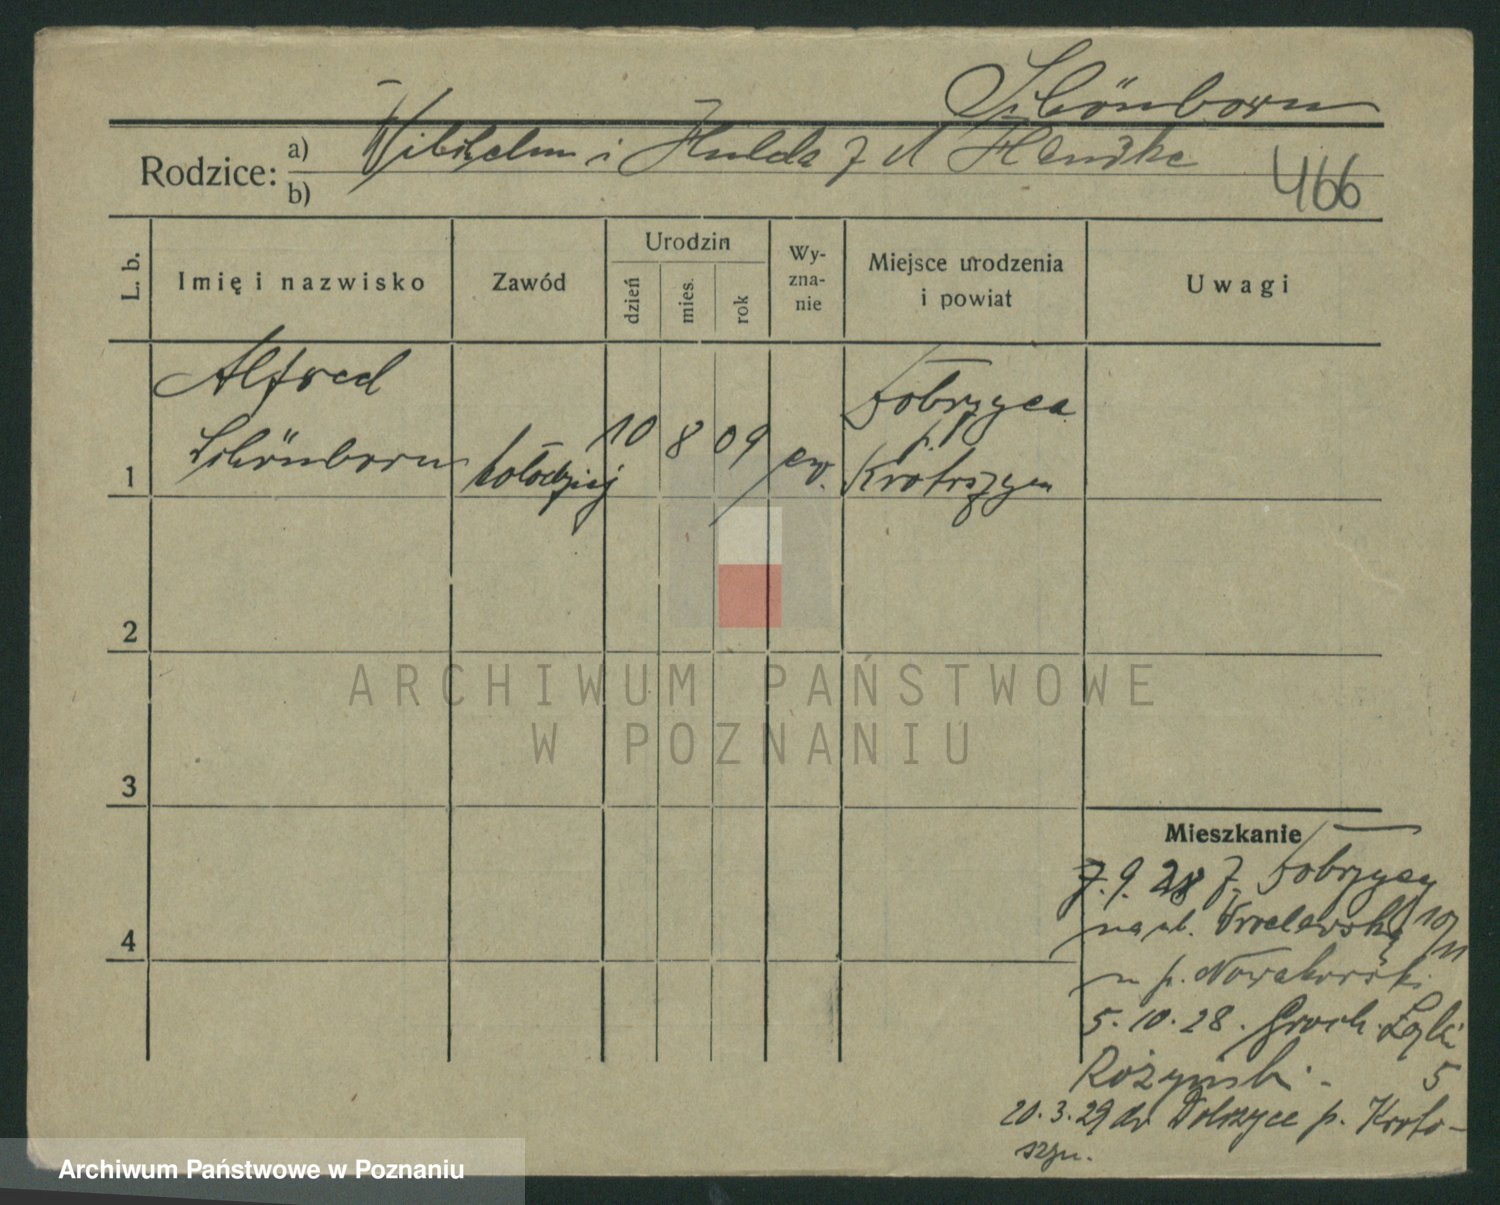 Schönborn
Rodzice: a) Wilhelm i Hulda z d
b)
466
L. b.
Imię i nazwisko
Zawód
Urodzin
dzień
mies.
rok
Wy-
zna-
nie
Miejsce urodzenia
i powiat
Uwagi
Alfred
Schönborn
1
kołodziej
10 8 09
ew.
Dobrzyca
p.
Krotoszyn
2
ARCHIWUM PAŃSTWOWE
W POZNANIU
3
Mieszkanie
7.9.28 z Dobrzycy
na ul. Wrocławską 10/11
u p. Nowakowski
5.10.28. Groch. Łąki
Rożyński - 5
20.3.29 do Dobrzyce p. Kroto-
szyn.
4
Archiwum Państwowe w Poznaniu